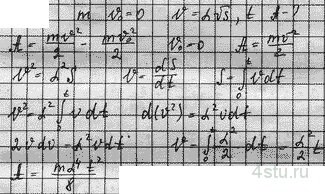 m v₀=0 v=α√s, t A-?
A = mv²/2 - mv₀²/2 v₀=0 A = mv²/2
v² = α²s v = ds/dt s = ∫₀ᵗ v dt
v² = α² ∫₀ᵗ v dt d(v²) = α² v dt
2v dv = α² v dt v = ∫₀ᵗ α²/2 dt = α²/2 t
A = mα⁴t²/8
4stu.ru